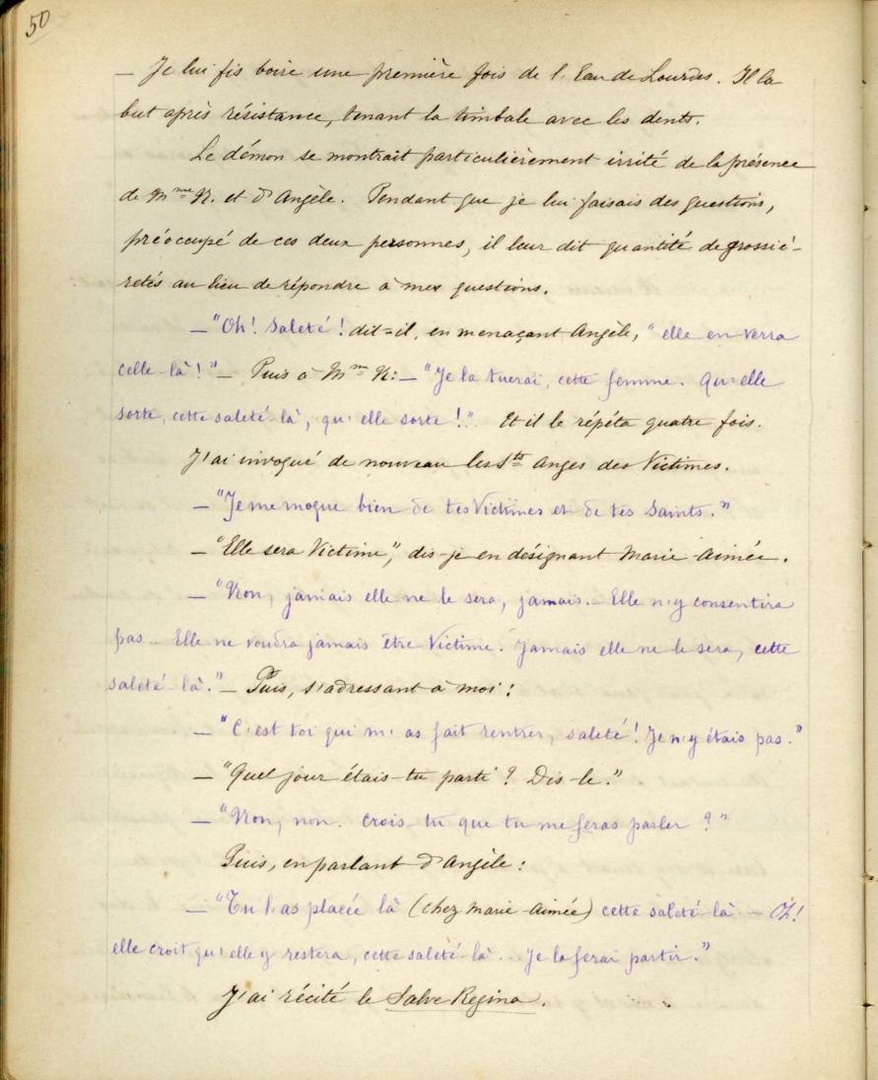 50
— Je lui fis boire une première fois de l'Eau de Lourdes. Il la
but après résistance, tenant la timbale avec les dents.
Le démon se montrait particulièrement irrité de la présence
de Mme N. et d'Angèle. Pendant que je lui faisais des questions,
préoccupé de ces deux personnes, il leur dit quantité de grossiè-
retés au lieu de répondre à mes questions.
— "Oh! Saleté! dit=il, en menaçant Angèle, "elle en verra
celle-là!" — Puis à Mme N: — "Je la tuerai, cette femme. Qu'elle
sorte, cette saleté-là, qu'elle sorte!". Et il le répéta quatre fois.
J'ai invoqué de nouveau les Sts Anges des Victimes.
— "Je me moque bien de tes Victimes et de tes Saints."
— "Elle sera Victime", dis-je en désignant Marie-Aimée.
— "Non, jamais elle ne le sera, jamais. — Elle n'y consentira
pas — Elle ne voudra jamais être Victime. Jamais elle ne le sera, cette
saleté-là." — Puis, s'adressant à moi:
— "C'est toi qui m'as fait rentrer, saleté! Je n'y étais pas."
— "Quel jour étais-tu parti? Dis-le."
— "Non, non. Crois-tu que tu me feras parler?"
Puis, en parlant d'Angèle:
— "Tu l'as placée là (chez Marie-Aimée) cette saleté-là — Oh!
elle croit qu'elle y restera, cette saleté-là... Je la ferai partir."
J'ai récité le Salve Regina.